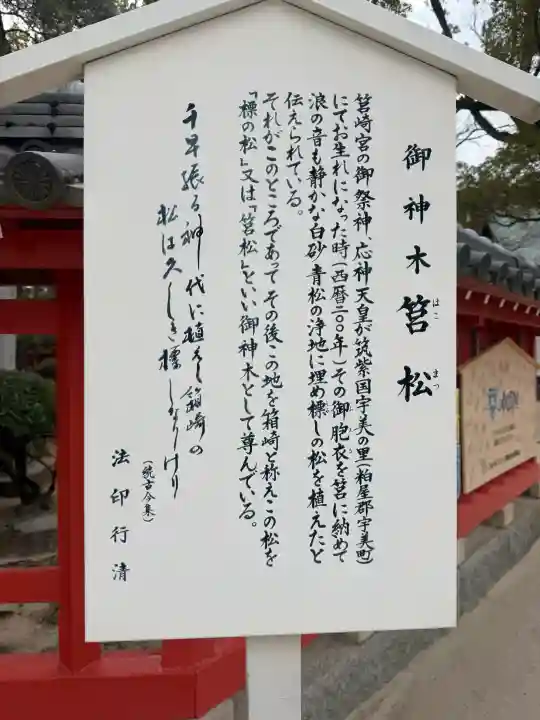 御神木筥松
はこ まつ
筥崎宮の御祭神、応神天皇が筑紫国宇美の里(粕屋郡宇美町)
にてお生れになった時(西暦二〇〇年)その御胞衣を筥に納めて
浪の音も静かな白砂青松の浄地に埋め標しの松を植えたと
伝えられている。
それがこのところであってその後この地を箱崎と称えこの松を
「標の松」又は「筥松」といい御神木として尊んでいる。
千早振る神代に植えし箱崎の
松は久しき標しなりけり
(続古今集)
法印行清